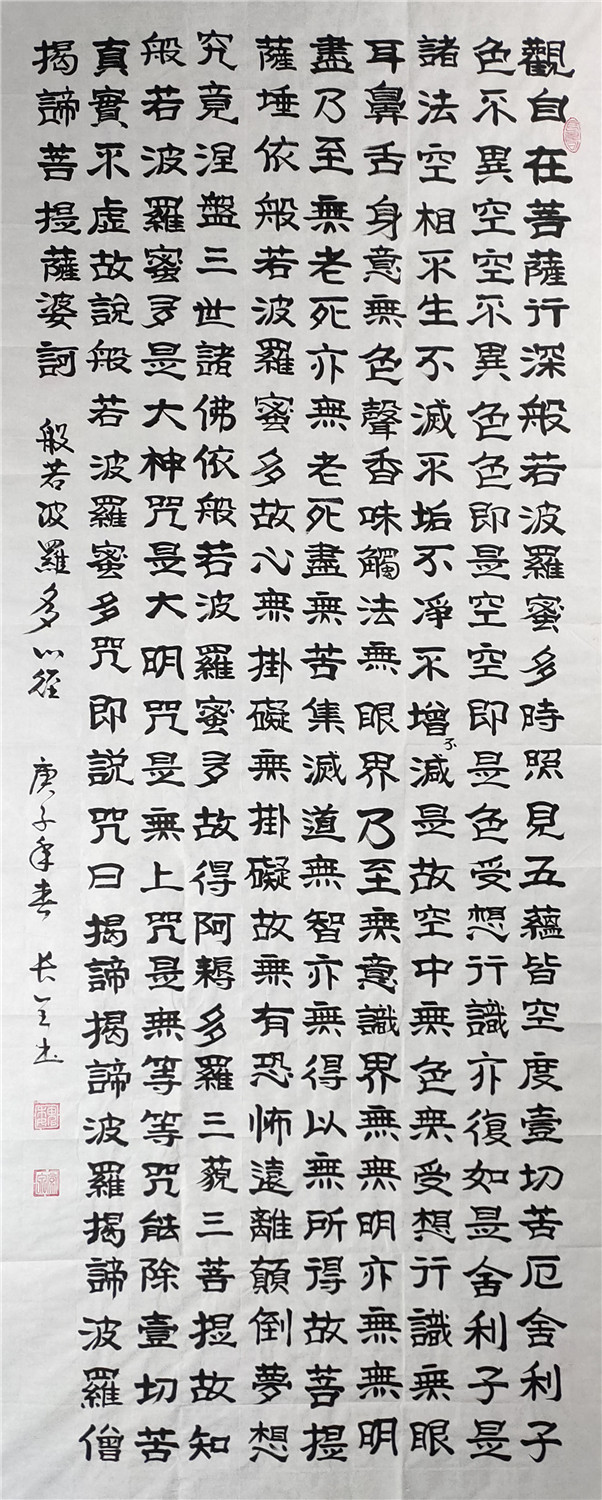 觀自在菩薩行深般若波羅蜜多時照見五蘊皆空度壹切苦厄舍利子
色不異空空不異色色即是空空即是色受想行識亦復如是舍利子是
諸法空相不生不滅不垢不淨不增不減是故空中無色無受想行識無眼
耳鼻舌身意無色聲香味觸法無眼界乃至無意識界無無明亦無無明
盡乃至無老死亦無老死盡無苦集滅道無智亦無得以無所得故菩提
薩埵依般若波羅蜜多故心無掛礙無掛礙故無有恐怖遠離顛倒夢想
究竟涅盤三世諸佛依般若波羅蜜多故得阿耨多羅三藐三菩提故知
般若波羅蜜多是大神咒是大明咒是無上咒是無等等咒能除壹切苦
真實不虛故說般若波羅蜜多咒即說咒曰揭諦揭諦波羅揭諦波羅僧
揭諦菩提薩婆訶 般若波羅多心經 庚子年春 长书